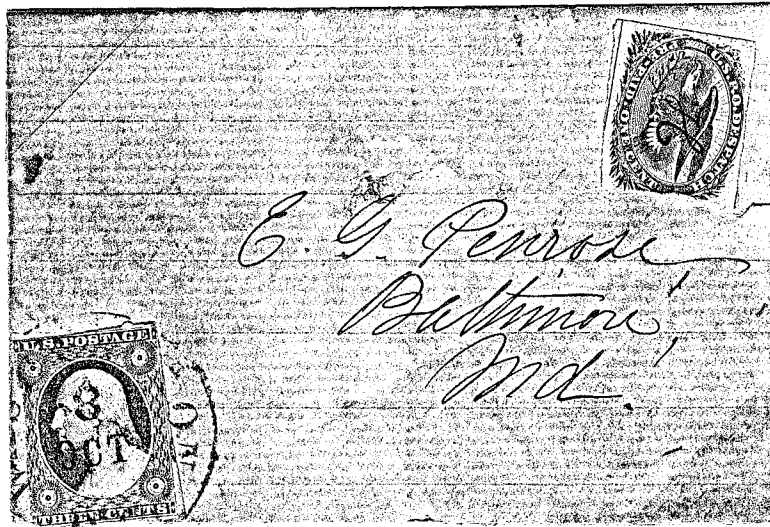 E. G. Penrose
Baltimore
Md.
U.S. POSTAGE
8
OCT
THREE CENTS